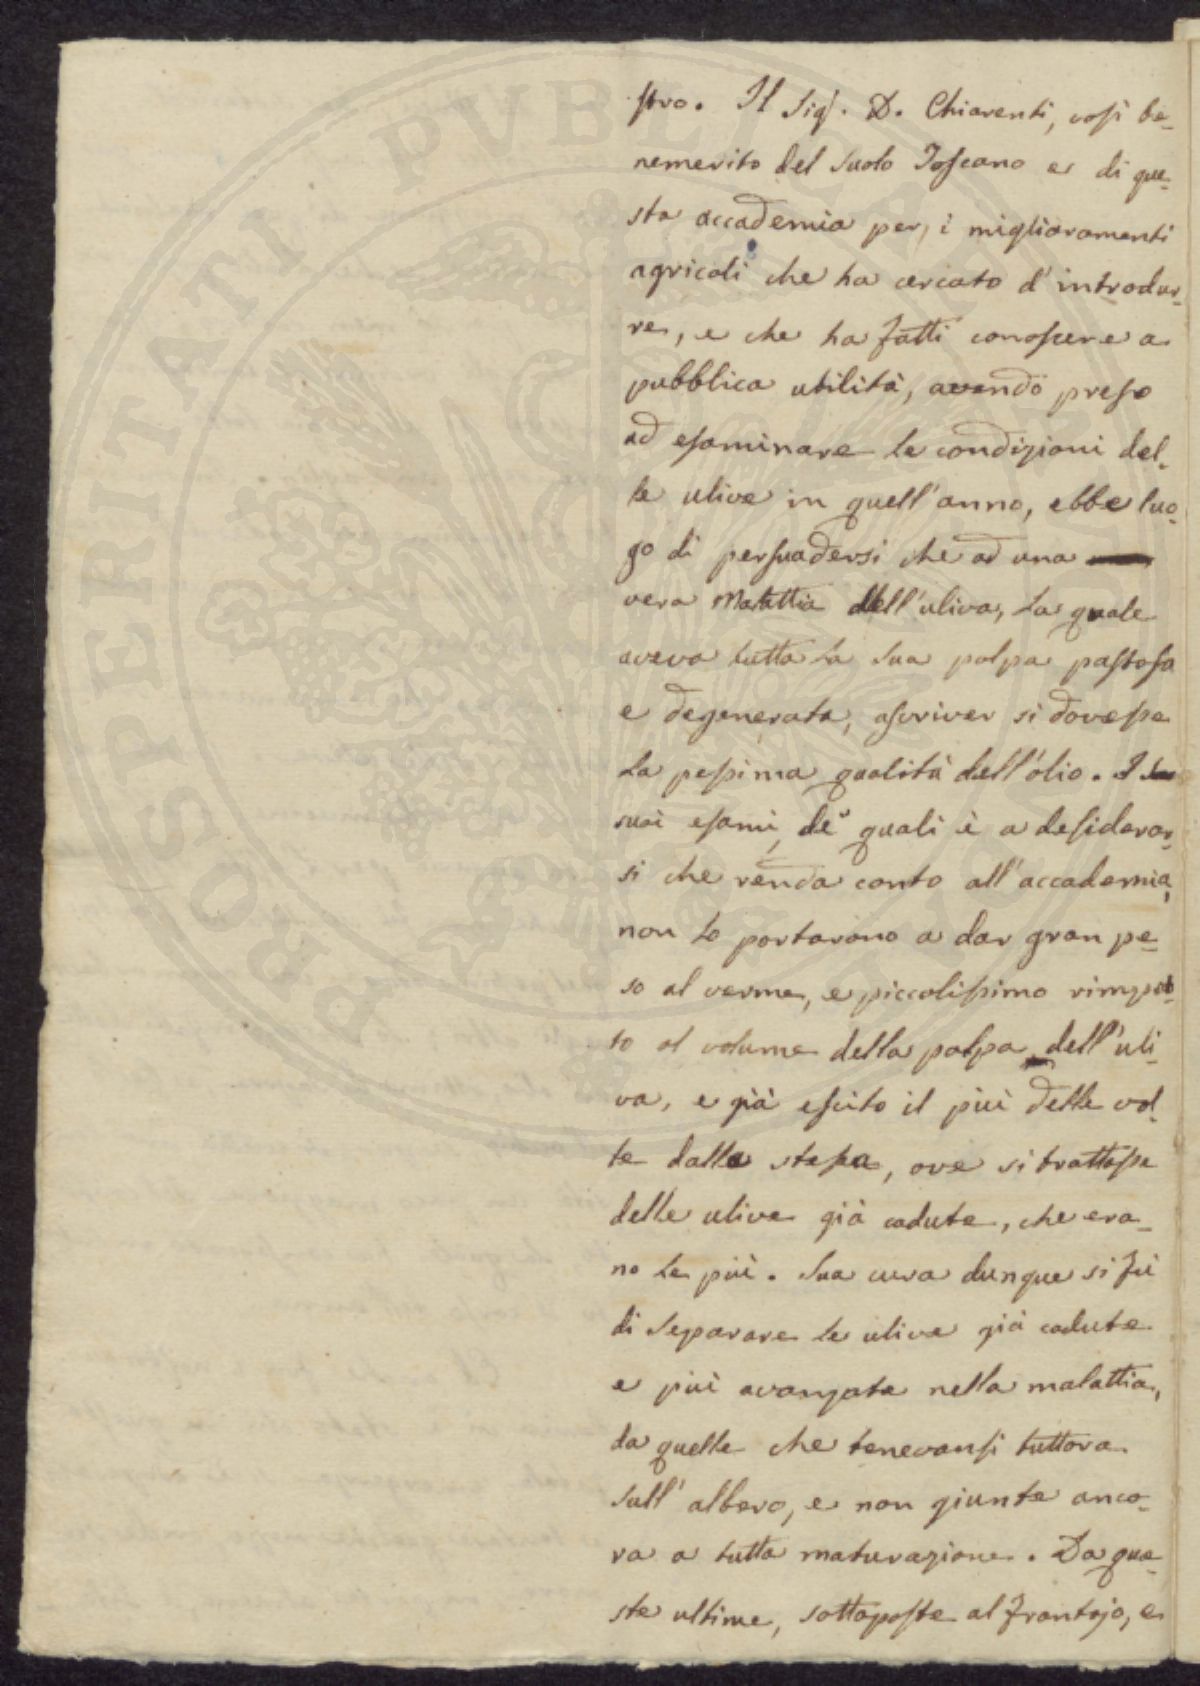 stro. Il Sig.r D. Chiarenti, così be-
nemerito del suolo Toscano e di que-
sta accademia per i miglioramenti
agricoli che ha cercato d'introdur-
re, e che ha fatti conoscere a
pubblica utilità, avendo preso
ad esaminare le condizioni del-
le ulive in quell'anno, ebbe luo-
go di persuadersi che ad una
vera malattia dell'uliva, la quale
aveva tutta la sua polpa pastosa
e degenerata, ascriver si dovesse
la pessima qualità dell'olio. I
suoi esami, de' quali è a desiderar-
si che renda conto all'accademia,
non lo portarono a dar gran pe-
so al verme, e piccolissimo rimpet-
to al volume della polpa dell'uli-
va, e già escito il più delle vol-
te dalla stessa, ove si trattasse
delle ulive già cadute, che era-
no le più. Sua cura dunque si fù
di separare le ulive già cadute
e più avanzate nella malattia,
da quelle che tenevansi tuttora
sull'albero, e non giunte anco-
ra a tutta maturazione. Da que-
ste ultime, sottoposte al frantojo, e
PROSPERITATI PUBLICAE AUGENDAE